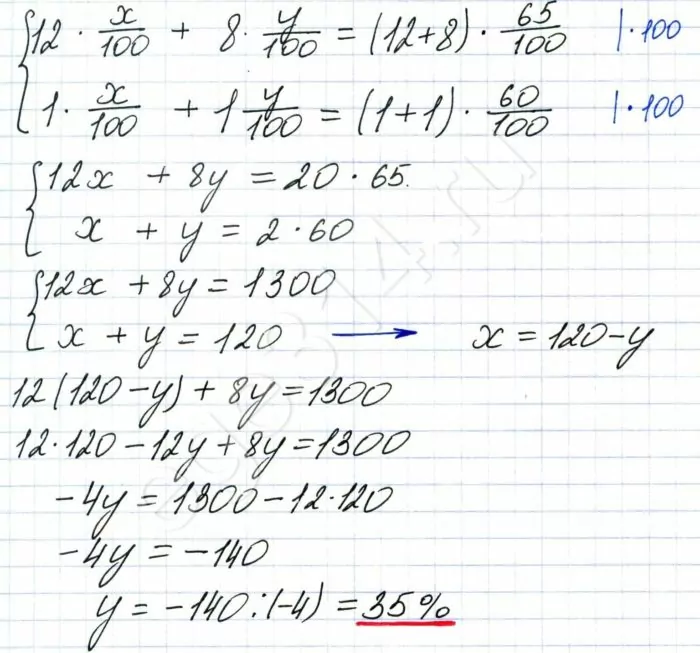 12 · x/100 + 8 · y/100 = (12+8) · 65/100 | · 100
1 · x/100 + 1 y/100 = (1+1) · 60/100 | · 100
12x + 8y = 20 · 65
x + y = 2 · 60
12x + 8y = 1300
x + y = 120 → x = 120 - y
12(120 - y) + 8y = 1300
12 · 120 - 12y + 8y = 1300
-4y = 1300 - 12 · 120
-4y = -140
y = -140 : (-4) = 35%